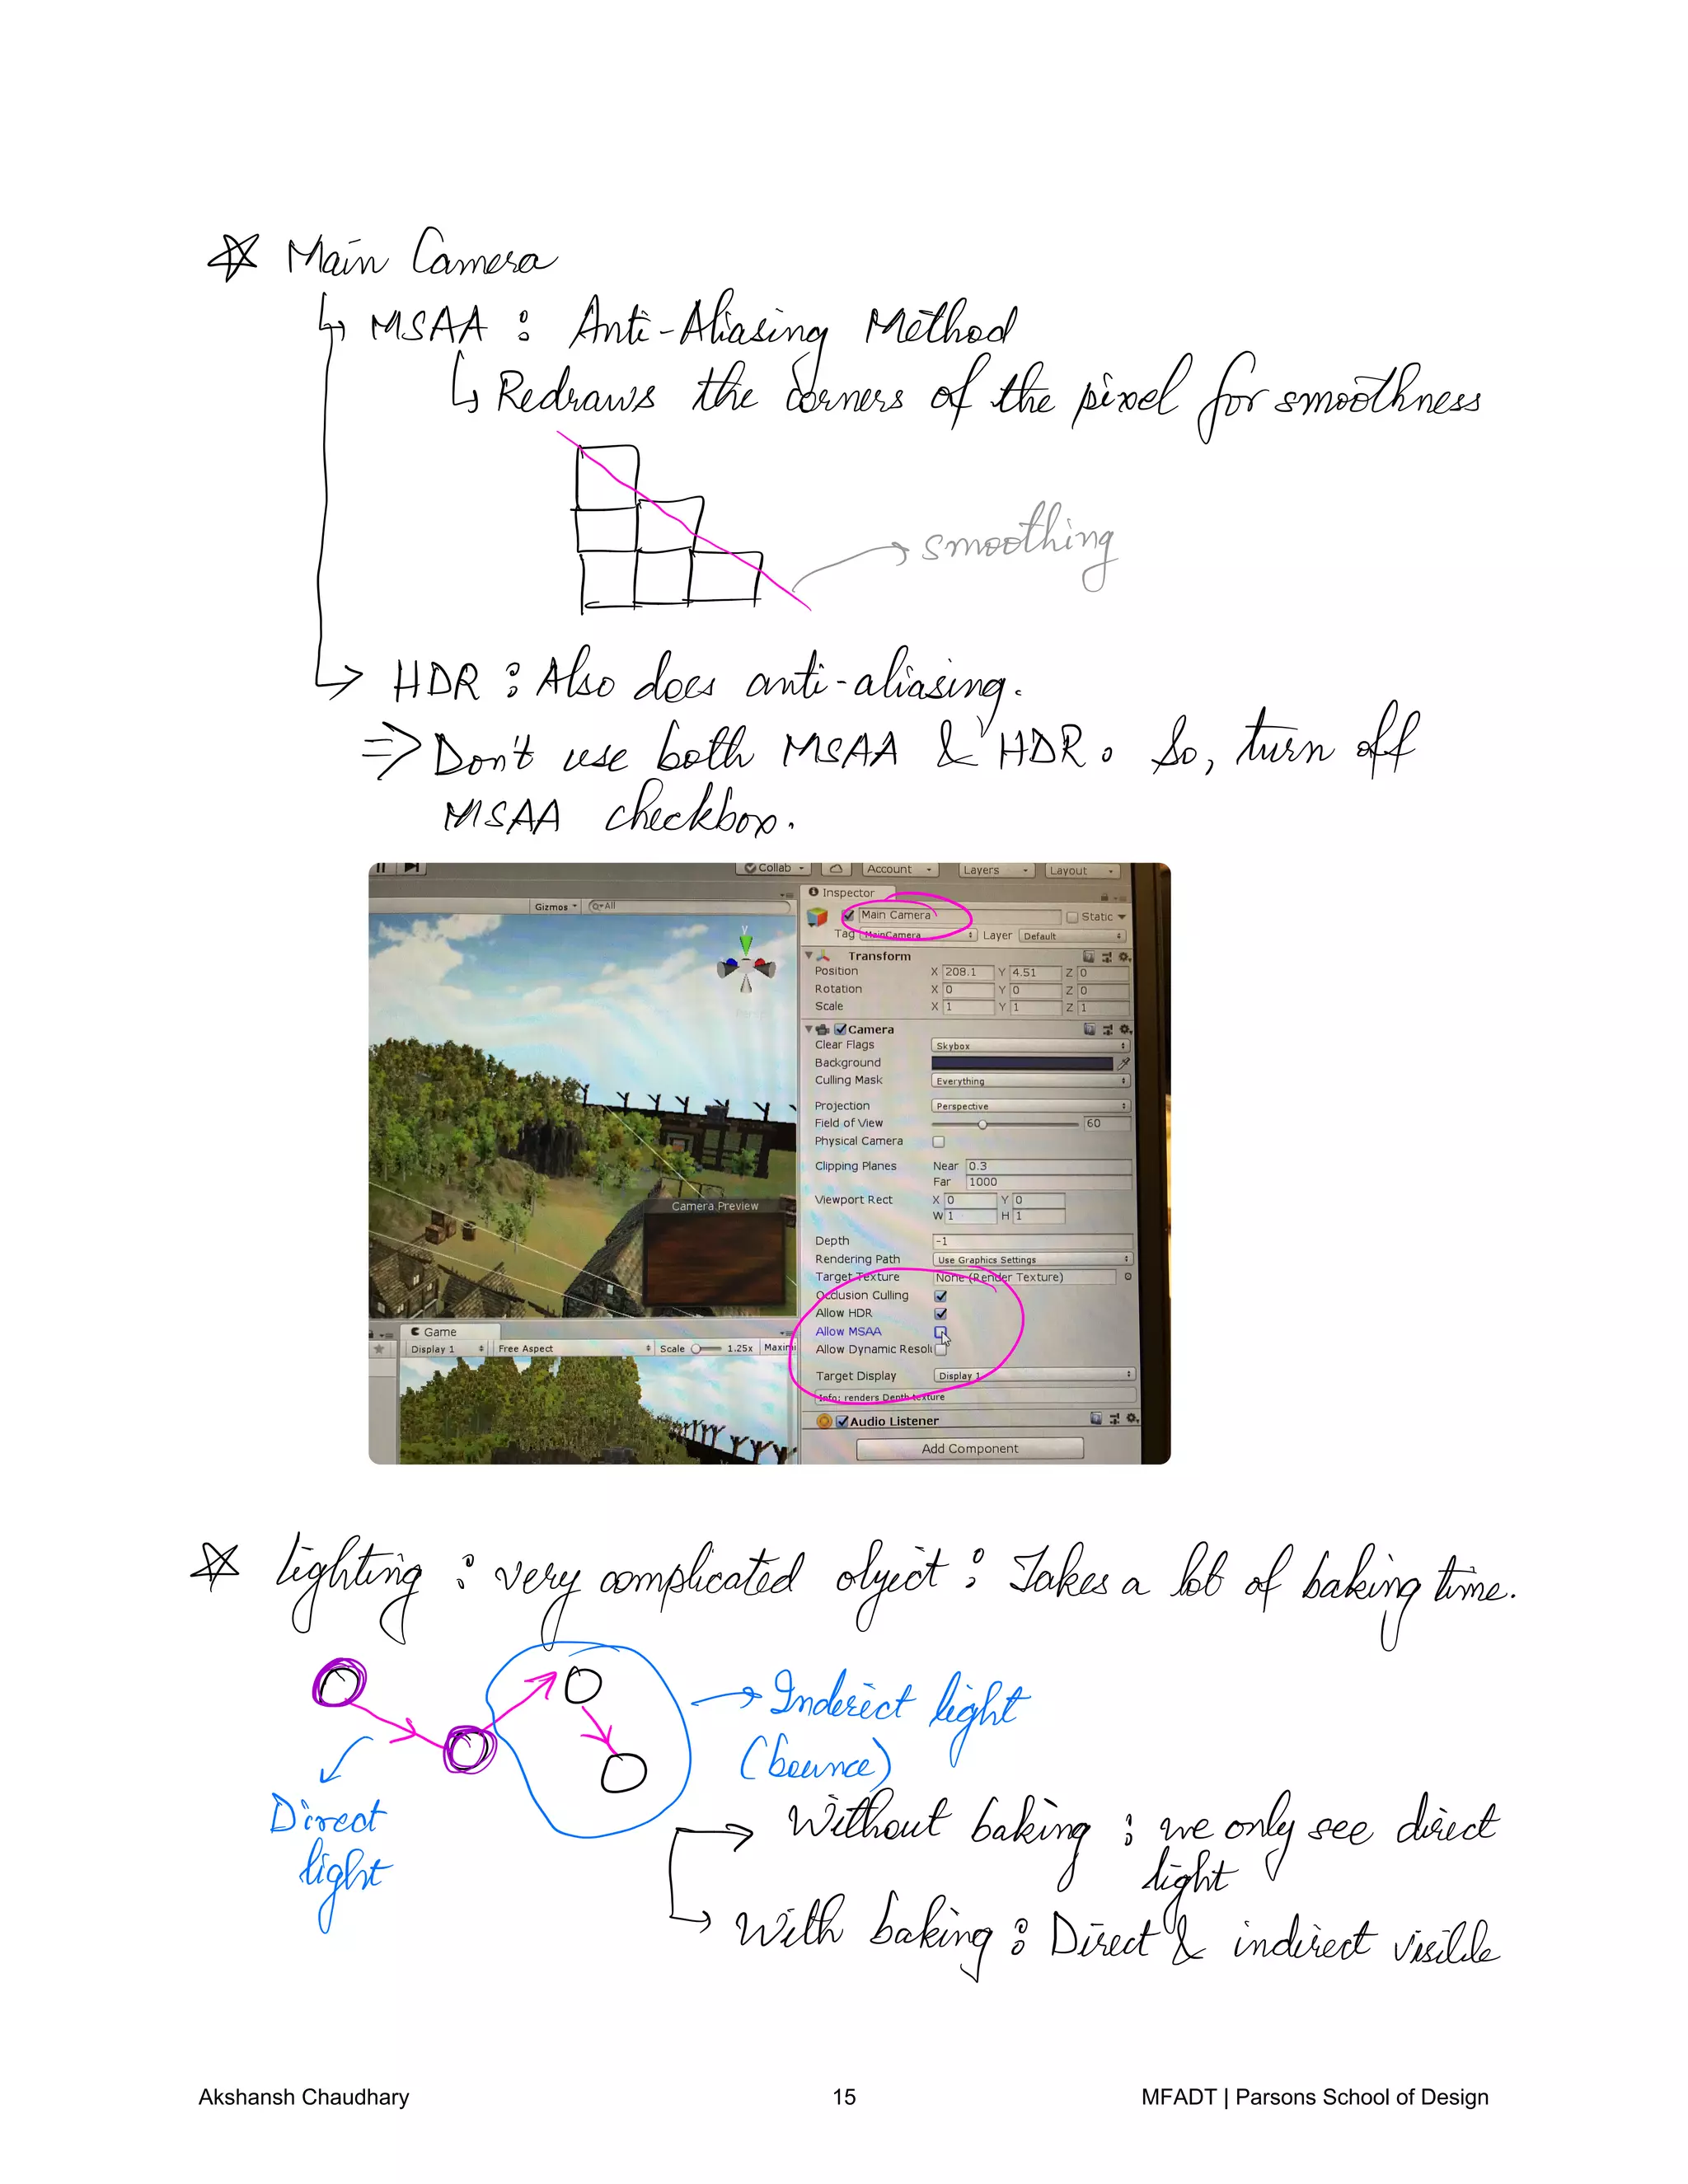 Main Camera
MSAA : Anti-Aliasing Method
Redraws the corners of the pixel for smoothness
smoothing
HDR : Also does anti-aliasing.
⇒ Don't use both MSAA & HDR. So, turn off
MSAA checkbox.
Collab
Account
Layers
Layout
Inspector
Gizmos
All
Main Camera
Static
Tag MainCamera Layer Default
Transform
Position X 208.1 Y 4.51 Z 0
Rotation X 0 Y 0 Z 0
Scale X 1 Y 1 Z 1
Camera
Clear Flags Skybox
Background
Culling Mask Everything
Projection Perspective
Field of View 60
Physical Camera
Clipping Planes Near 0.3
Far 1000
Viewport Rect X 0 Y 0
W 1 H 1
Camera Preview
Depth -1
Rendering Path Use Graphics Settings
Target Texture None (Render Texture)
Occlusion Culling
Allow HDR
Allow MSAA
Allow Dynamic Resolu
Target Display Display 1
Info: renders Depth texture
Audio Listener
Add Component
Game
Display 1 Free Aspect Scale 1.25x Maxim
Lighting : very complicated object : Takes a lot of baking time.
Inderect light
(bounce)
Direct
light
Without baking : we only see direct
light
With baking : Direct & indirect visible
Akshansh Chaudhary 15 MFADT | Parsons School of Design